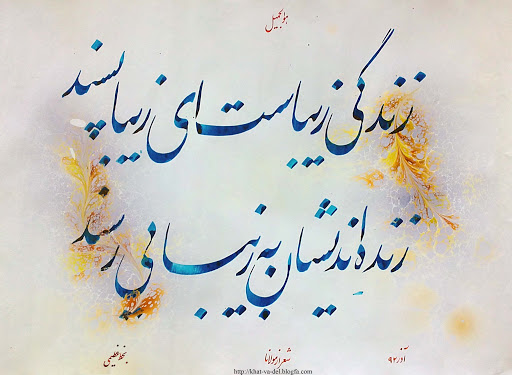 هوالجمیل
زندگی زیباست ای زیباپسند
زنده اندیشان به زیبایی رسند
آذر ۹۲
شعر از مولانا
بخط عظیمی
http://khat-va-del.blogfa.com